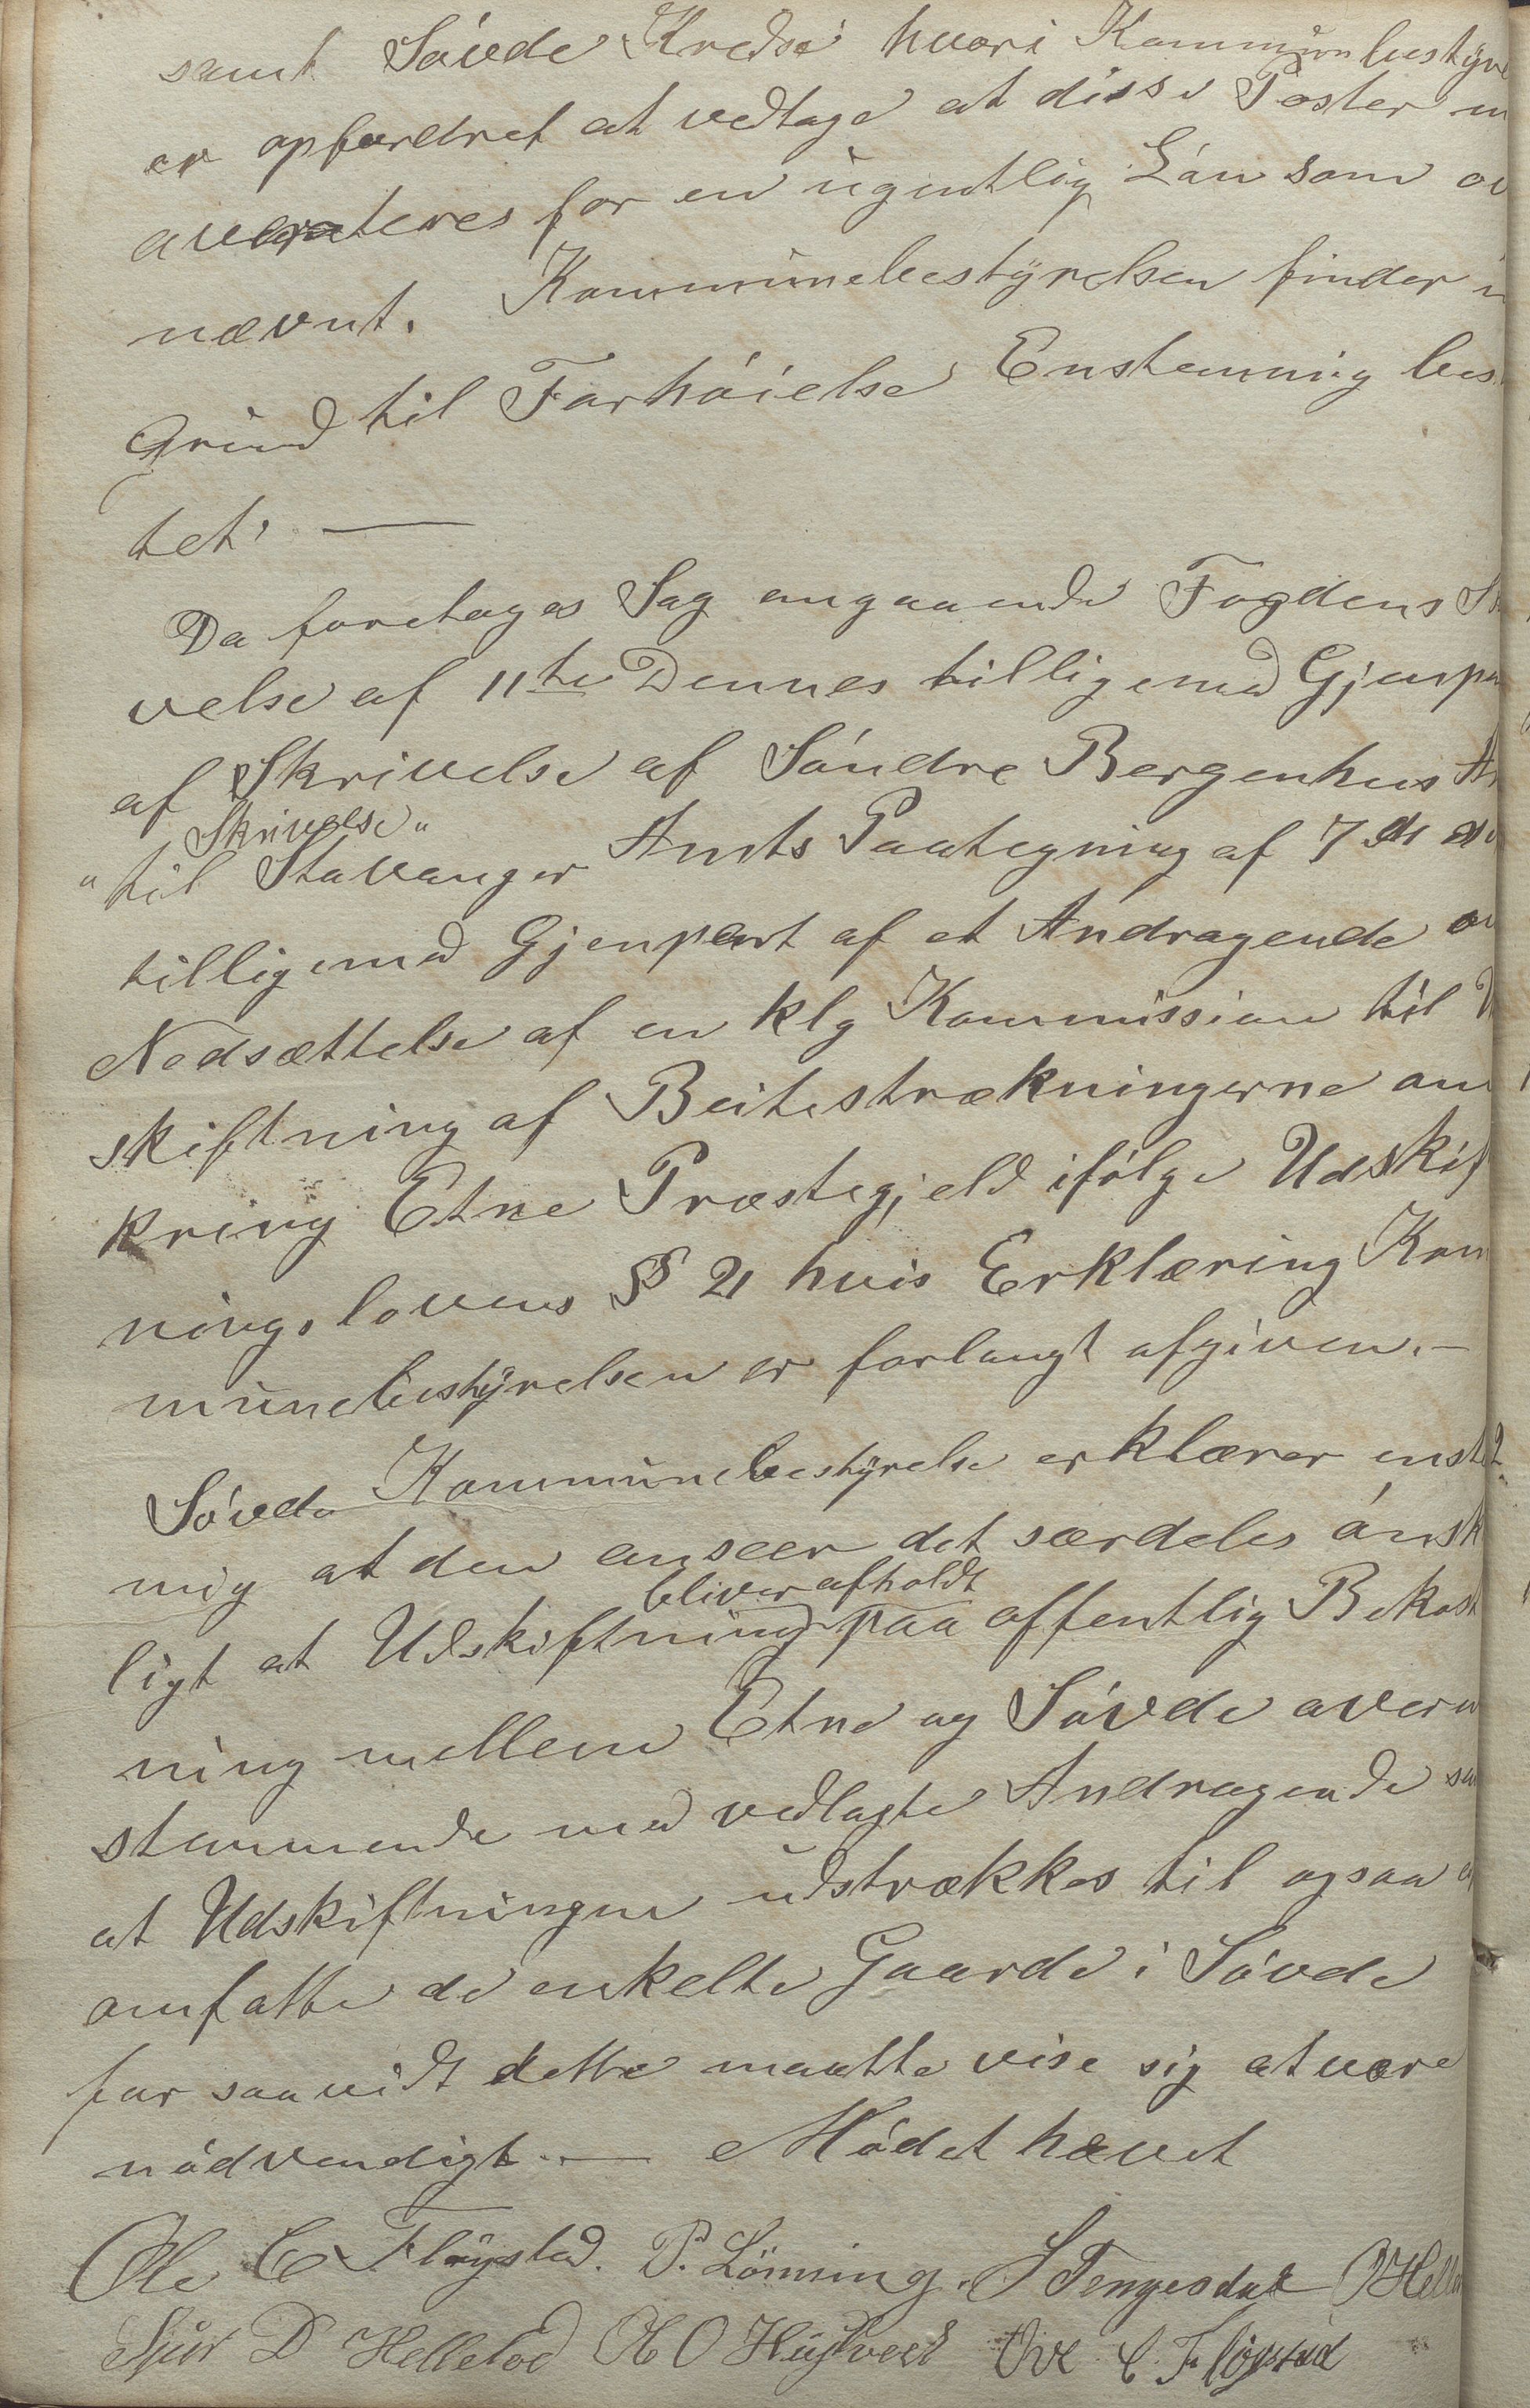 samt Søvde Kredse hvori Kommunbestyre
er opfordret at vedtage at disse Poster
averteres for en ugentlig Løn som ov
nævnt. Kommunebestyrelsen finder i
Grund til Forhøielse Enstemmig bes
tet. —
Da foretages Sag angaaende Fogdens S
velse af 11te Dennes tilligemed Gjenpa
af Skrivelse af Søndre Bergenhus A
Skrivelse "
" til Stavanger Amts Paategning af 7de
tilligemed Gjenpart af et Andragende o
Nedsættelse af en klg Kommission til U
skiftning af Beitestrækningerne om
kring Etne Præstegjeld ifølge Udskif
ningslovens § 21 hvis Erklæring Kom
munebestyrelsen er forlangt afgiven. —
Søvde Kommunebestyrelse erklærer enst
mig at den anseer det særdeles ønsk
bliver afholdt
ligt at Udskiftning paa offentlig Bekost
ning mellem Etne og Søvde overen
stemmende med vedlagte Andragende sa
at Udskiftningen udstrækkes til ogsaa a
omfatte de enkelte Gaarde i Søvde
for saavidt dette maatte vise sig at være
nødvendigt. — Mødet hævet
Ole C Fløgstad. P. Lønning. S Tengesdal O Hell
Sjur D Helleland O Huglvest Ove C. Fløgstad